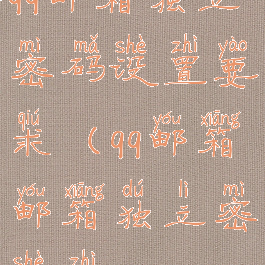 qq邮箱独立
mì mǎ shè zhì yào
密码设置要
qiú yóu xiāng
求(qq邮箱
yóu xiāng dú lì mì
邮箱独立密
shè zhì